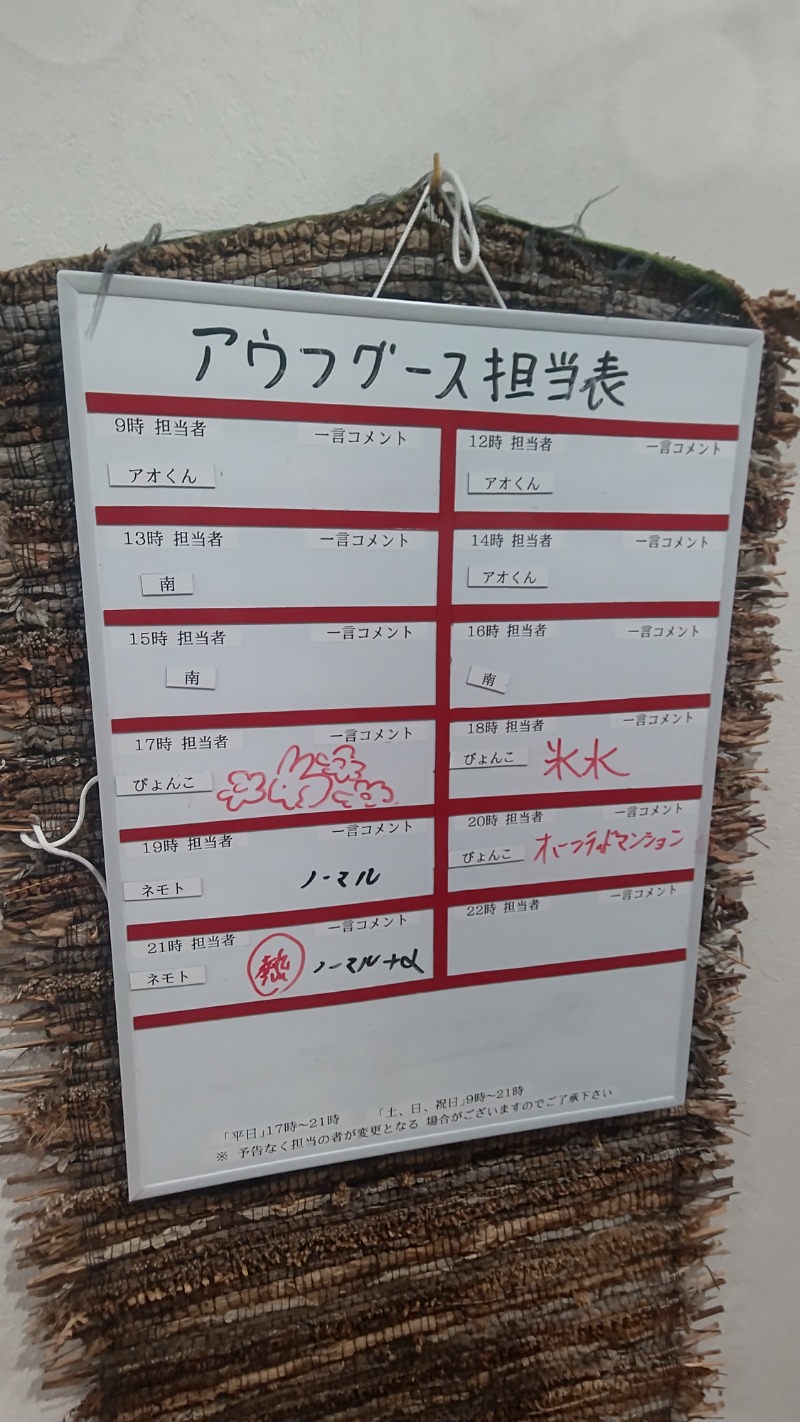 アウフグース担当表
9時 担当者 一言コメント
アオくん
12時 担当者 一言コメント
アオくん
13時 担当者 一言コメント
南
14時 担当者 一言コメント
アオくん
15時 担当者 一言コメント
南
16時 担当者 一言コメント
南
17時 担当者 一言コメント
ぴょんこ
18時 担当者 一言コメント
ぴょんこ 氷水
19時 担当者 一言コメント
ネモト ノーマル
20時 担当者 一言コメント
ぴょんこ ホーンテッドマンション
21時 担当者 一言コメント
ネモト 熱 ノーマル+α
22時 担当者 一言コメント
「平日」17時～21時 「土、日、祝日」9時～21時
※ 予告なく担当の者が変更となる 場合がございますのでご了承下さい